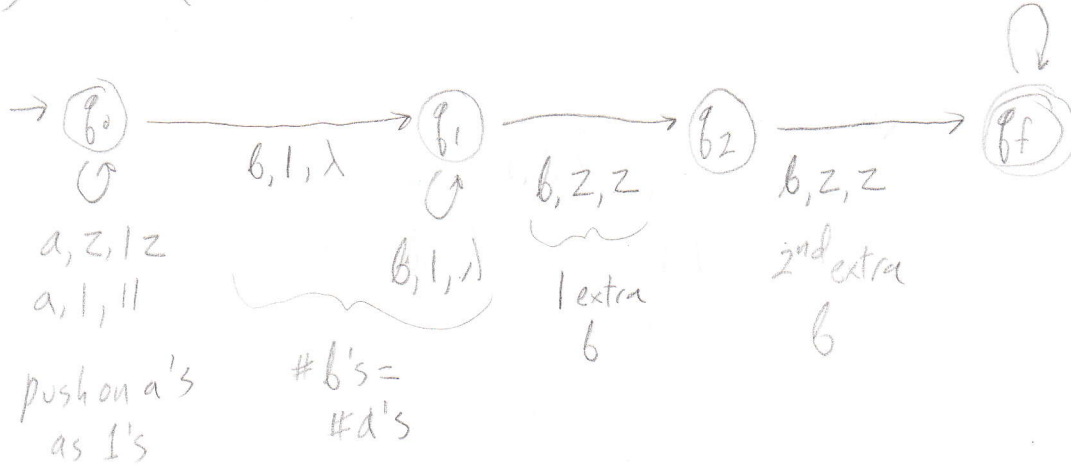 q0
q1
q2
qf
b, 1, λ
b, z, z
b, z, z
a, z, 1z
a, 1, 11
b, 1, λ
1 extra
b
2nd extra
b
push on a's
as 1's
#b's =
#a's